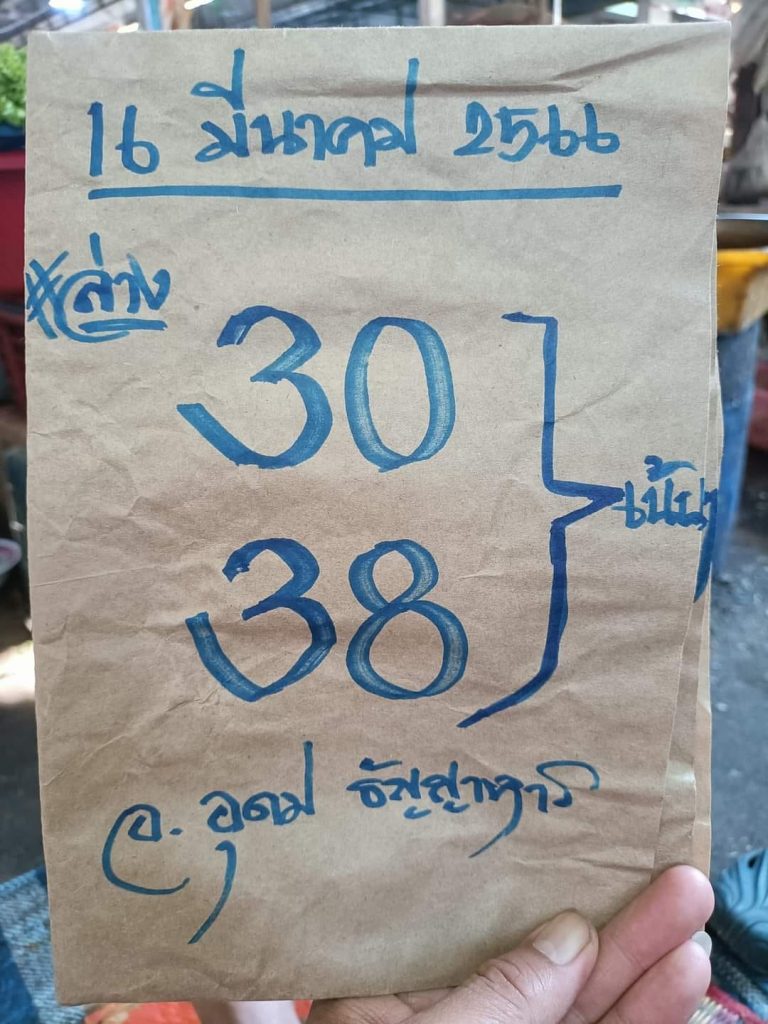 16 มีนาคม 2566
#ล่าง
30
38
เน้นๆ
อ. อุดม ธัญญาหาร